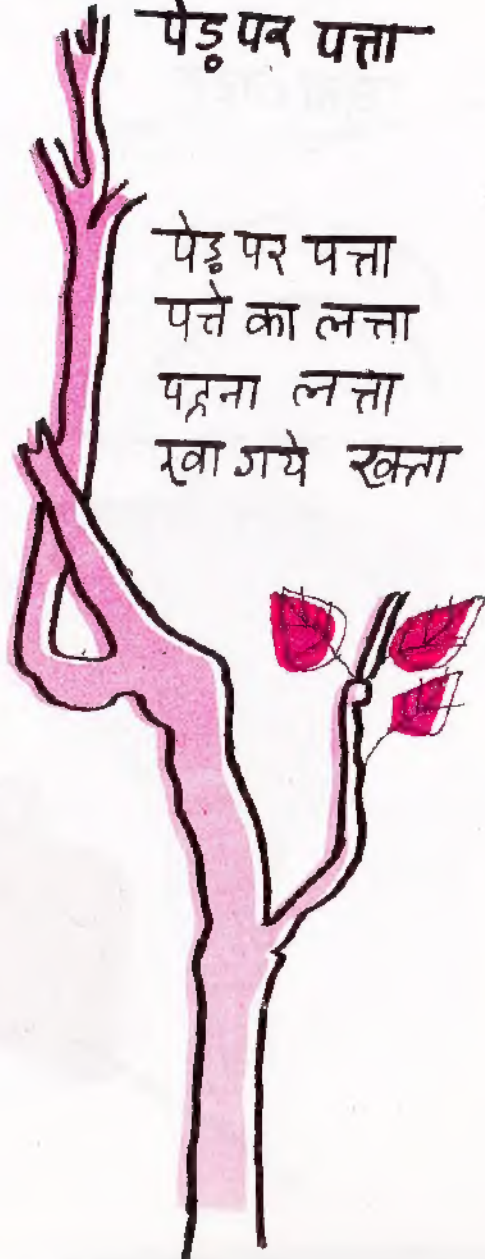 पेड़ पर पत्ता
पेड़ पर पत्ता
पत्ते का लत्ता
पहना लत्ता
खा गये खत्ता